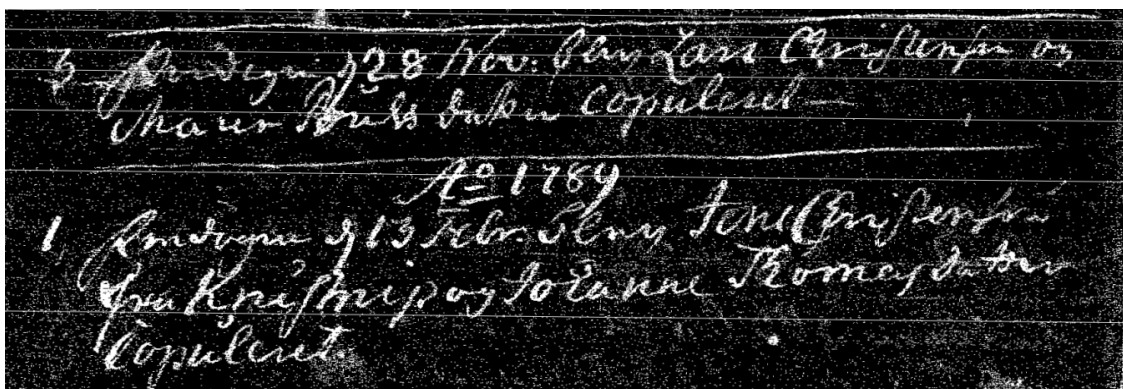 3 Fredagen d 28 Nov: blev Lars Christensen og
Maren Poulsdatter Copuleret
Ao 1789
1 Fredagen d 13 Febr. blev Christensen
fra og Johanne Thomasdatter
Copuleret.